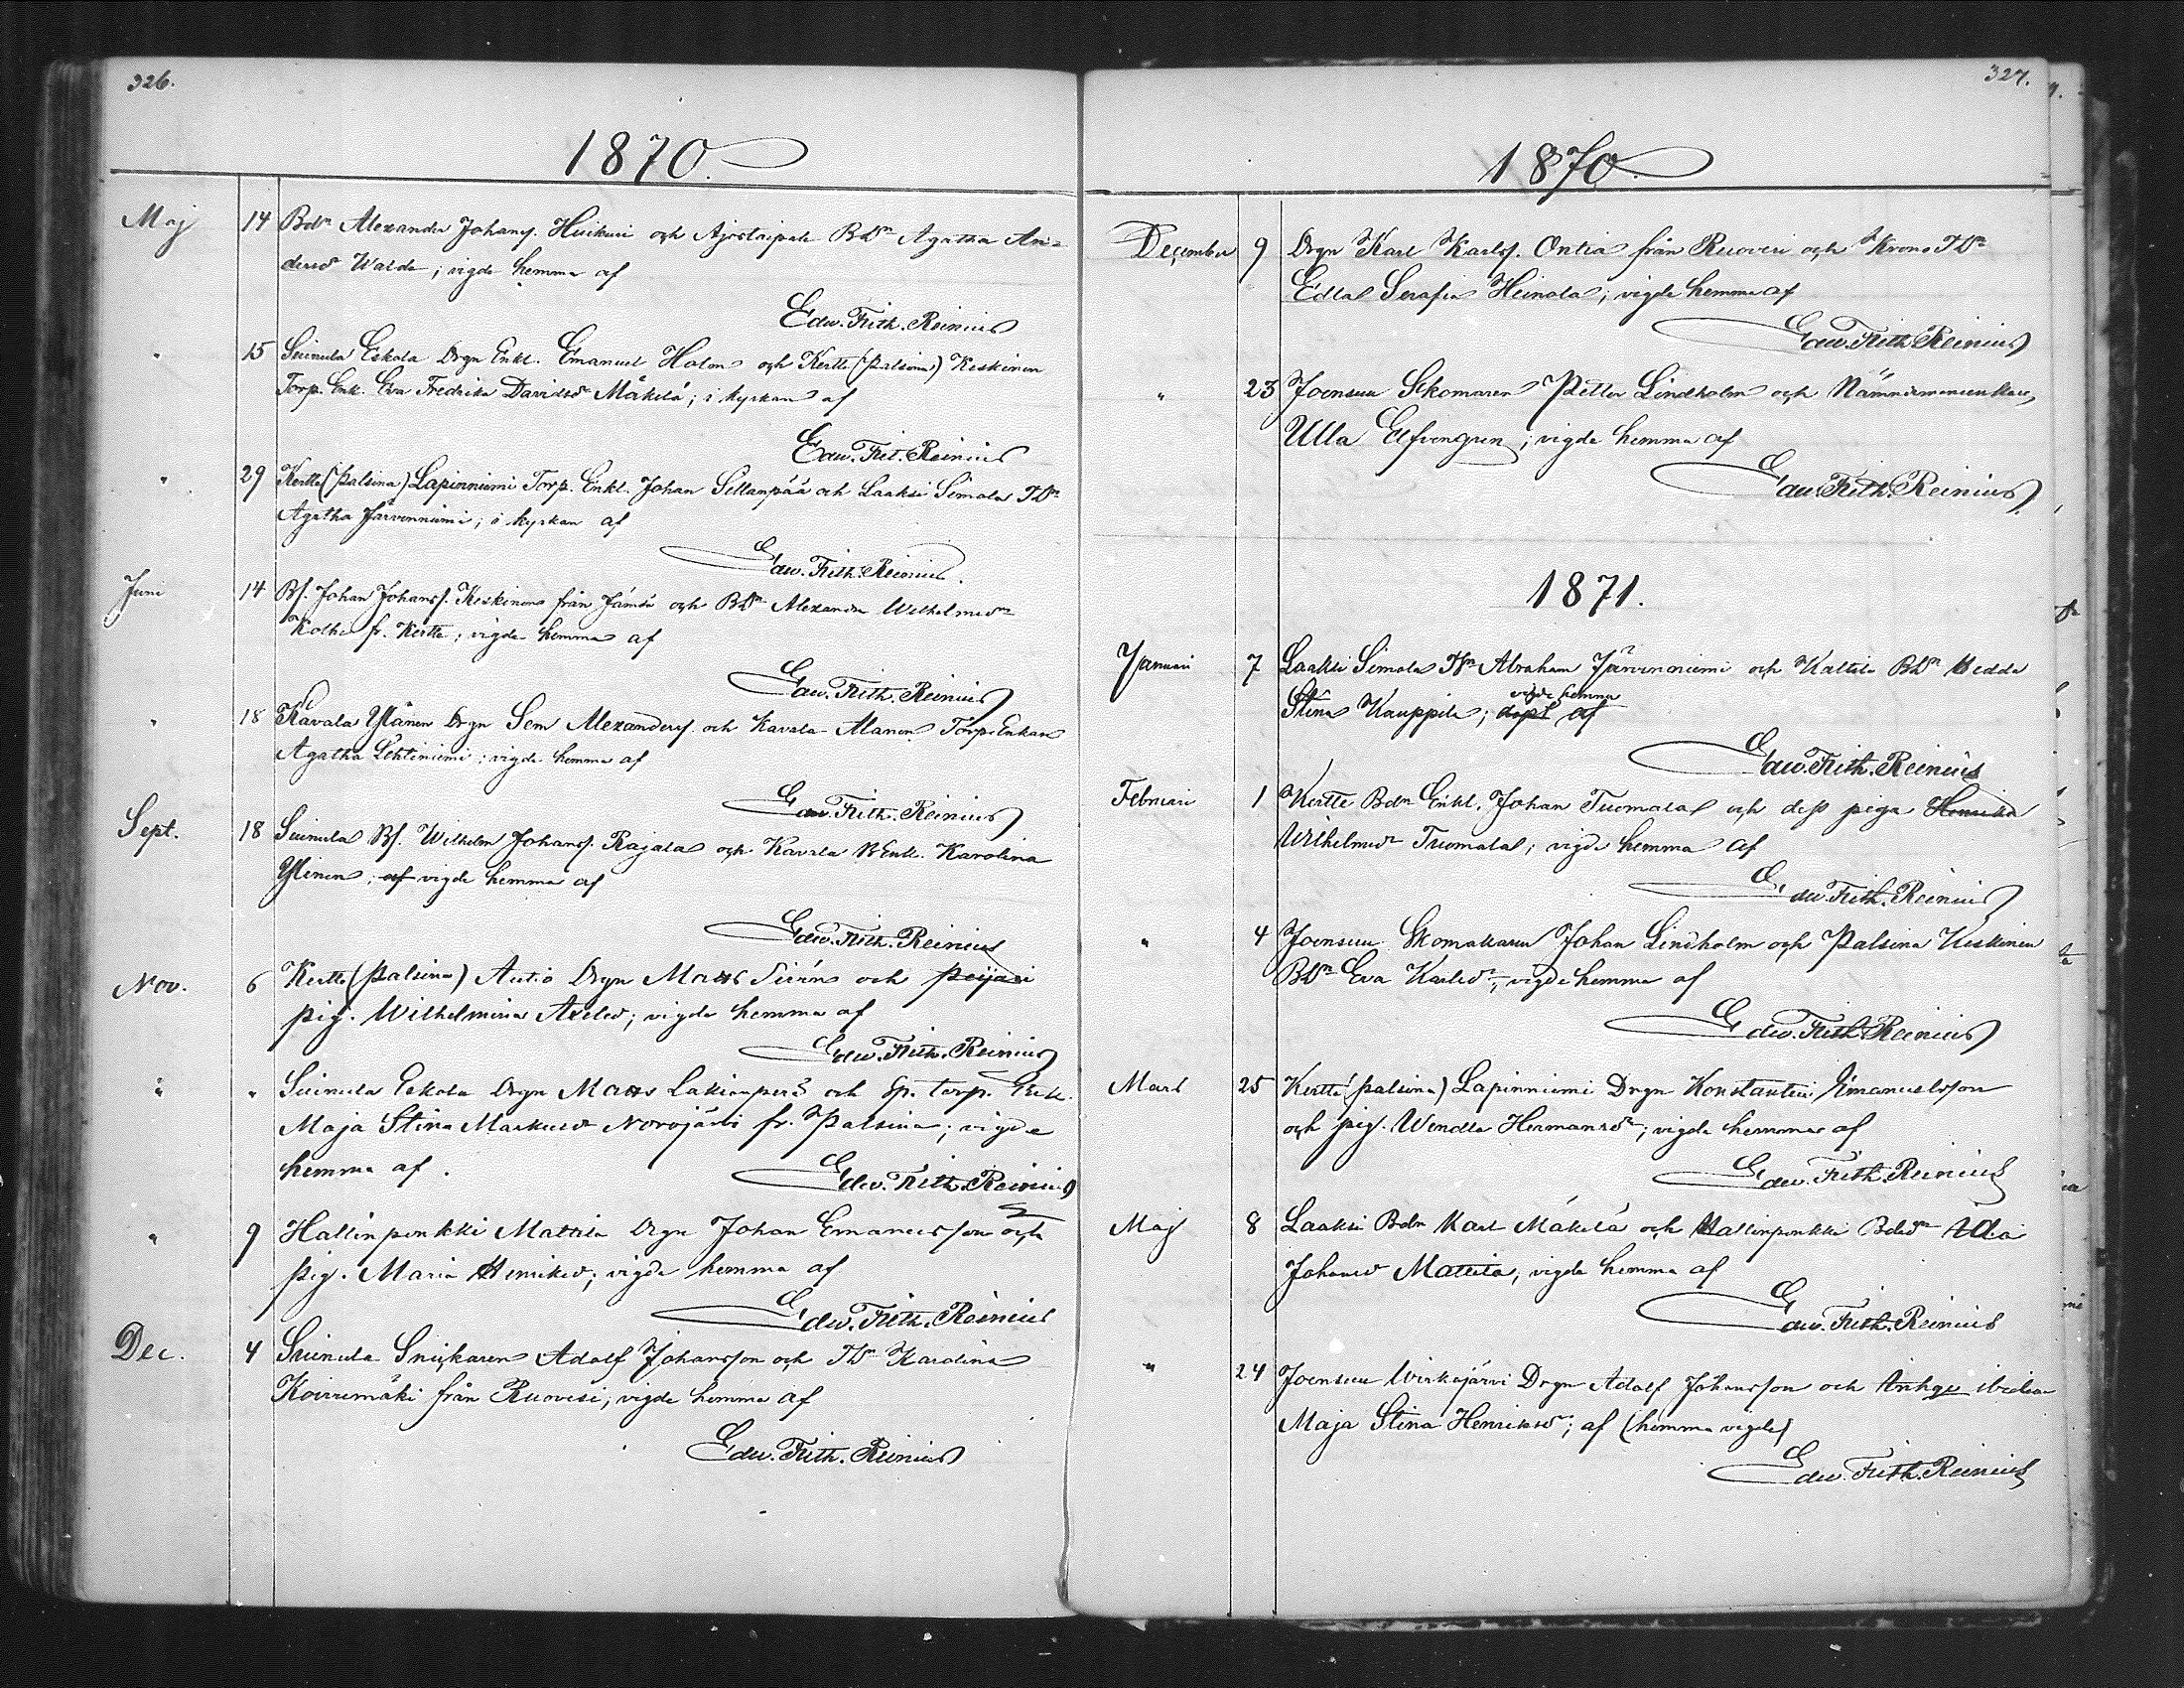 326.
1870.
Maj 14 Bdr Alexander Johans. Huikuri och Ajostaipale Bdr Agatha An-
dersd Walde; vigde hemma af
Edw. Frith. Reinius
" 15 Suinula Eskola Drgn Enkl. Emanuel Holm och Kertte (Palsina) Keskinen
Torp. Enk. Eva Fredrika Davidsdr Mäkelä; i kyrkan af
Edw. Frit. Reinius
" 29 Kertte (Palsina) Lapinniemi Torp. Enkl. Johan Sillanpää och Laaksi Simola TDr
Agatha Järvenniemi; i kyrkan af
Edw. Frith. Reinius.
Juni 14 Bs. Johan Johans. Keskinen från Jämsä och BDr Alexandra Wilhelmsdr
Kolhi fr. Kertte; vigde hemma af
Edw. Frith. Reinius
" 18 Kavala Ylänen Drgn Sem Alexanders. och Kavala Alanen Torp. Enkan
Agatha Lehtiniemi; vigde hemma af
Edw. Frith. Reinius
Sept. 18 Suinula Bs. Wilhelm Johans. Rajala och Kavala B Enk. Karolina
Ylinen; af vigde hemma af
Edw. Frith. Reinius
Nov. 6 Kertte (Palsina) Autio Drgn Matts Sirén och
pig. Wilhelmina Axelsd; vigde hemma af
Edw. Frith. Reinius
" " Suinula Eskola Drgn Matts Lakianperä och Sp. torp. Enk.
Maja Stina Markusdr Norojärvi fr. Palsina; vigde
hemma af.
Edw. Frith. Reinius
" 9 Hallinpenkki Mattila Drgn Johan Emanuelsson och
pig. Maria Henriksd; vigde hemma af
Edw. Frith. Reinius
Dec. 4 Suinula Snickaren Adolf Johansson och TDr Karolina
Koivumäki från Ruovesi; vigde hemma af
Edw. Frith. Reinius
327.
1870.
December 9 Drgn Karl Karls. Ontia från Ruovesi och Krono TDr
Edla Serafia Heinola; vigde hemma af
Edw. Frith. Reinius
" 23 Joensuu Skomaren Petter Lindholm och Nämndemanenkan
Ulla Elfvengren; vigde hemma af
Edw. Frith. Reinius
1871.
Januari 7 Laaksi Simola Tsn Abraham Järvenniemi och Kaltila BDr Hedda
Stina Kauppila; döpt vigde hemma af
Edw. Frith. Reinius
Februari 1 Kertte Bdn Enkl. Johan Tuomala och dess piga Henrika
Wilhelmsdr Tuomala; vigde hemma af
Edw. Frith. Reinius
" 4 Joensuu Skomakaren Johan Lindholm och Palsina Keskinen
BDr Eva Karlsdr; vigde hemma af
Edw. Frith. Reinius
Mars 25 Kertte (Palsina) Lapinniemi Drgn Konstantin Emanuelsson
och pig. Wendla Hermansdr; vigde hemma af
Edw. Frith. Reinius
Maj 8 Laaksi Bdn Karl Mäkelä och Hallinpenkki Bdsdr Ida
Johansd Mattila; vigde hemma af
Edw. Frith. Reinius
" 24 Joensuu Wirkajärvi Drgn Adolf Johansson och
Maja Stina Henriksdr; af (hemma vigde)
Edw. Frith. Reinius